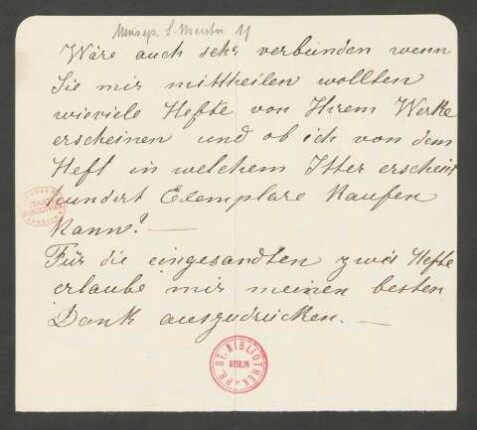 Wäre auch sehr verbunden wenn
Sie mir mittheilen wollten
wieviele Hefte von Ihrem Werke
erscheinen und ob ich von dem
Heft in welchem Itter erscheint
hundert Exemplare kaufen
kann? —
Für die eingesandten zwei Hefte
erlaube mir meinen besten
Dank auszudrücken. —
PR. ST. BIBLIOTHEK
BERLIN